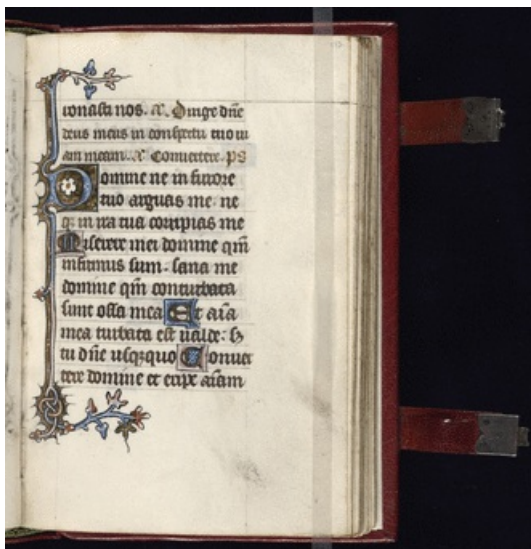 ronasti nos. a. Dirige dñe
deus meus in conspectu tuo ui
am meam. a Conuertere. ps
Domine ne in furore
tuo arguas me. ne
q; in ira tua corripias me
Miserere mei domine qm̄
infirmus sum. sana me
domine qm̄ conturbata
sunt ossa mea Et aīa
mea turbata est ualde: s;
tu dñe usq;quo Conuer
tere domine et eripe aīam